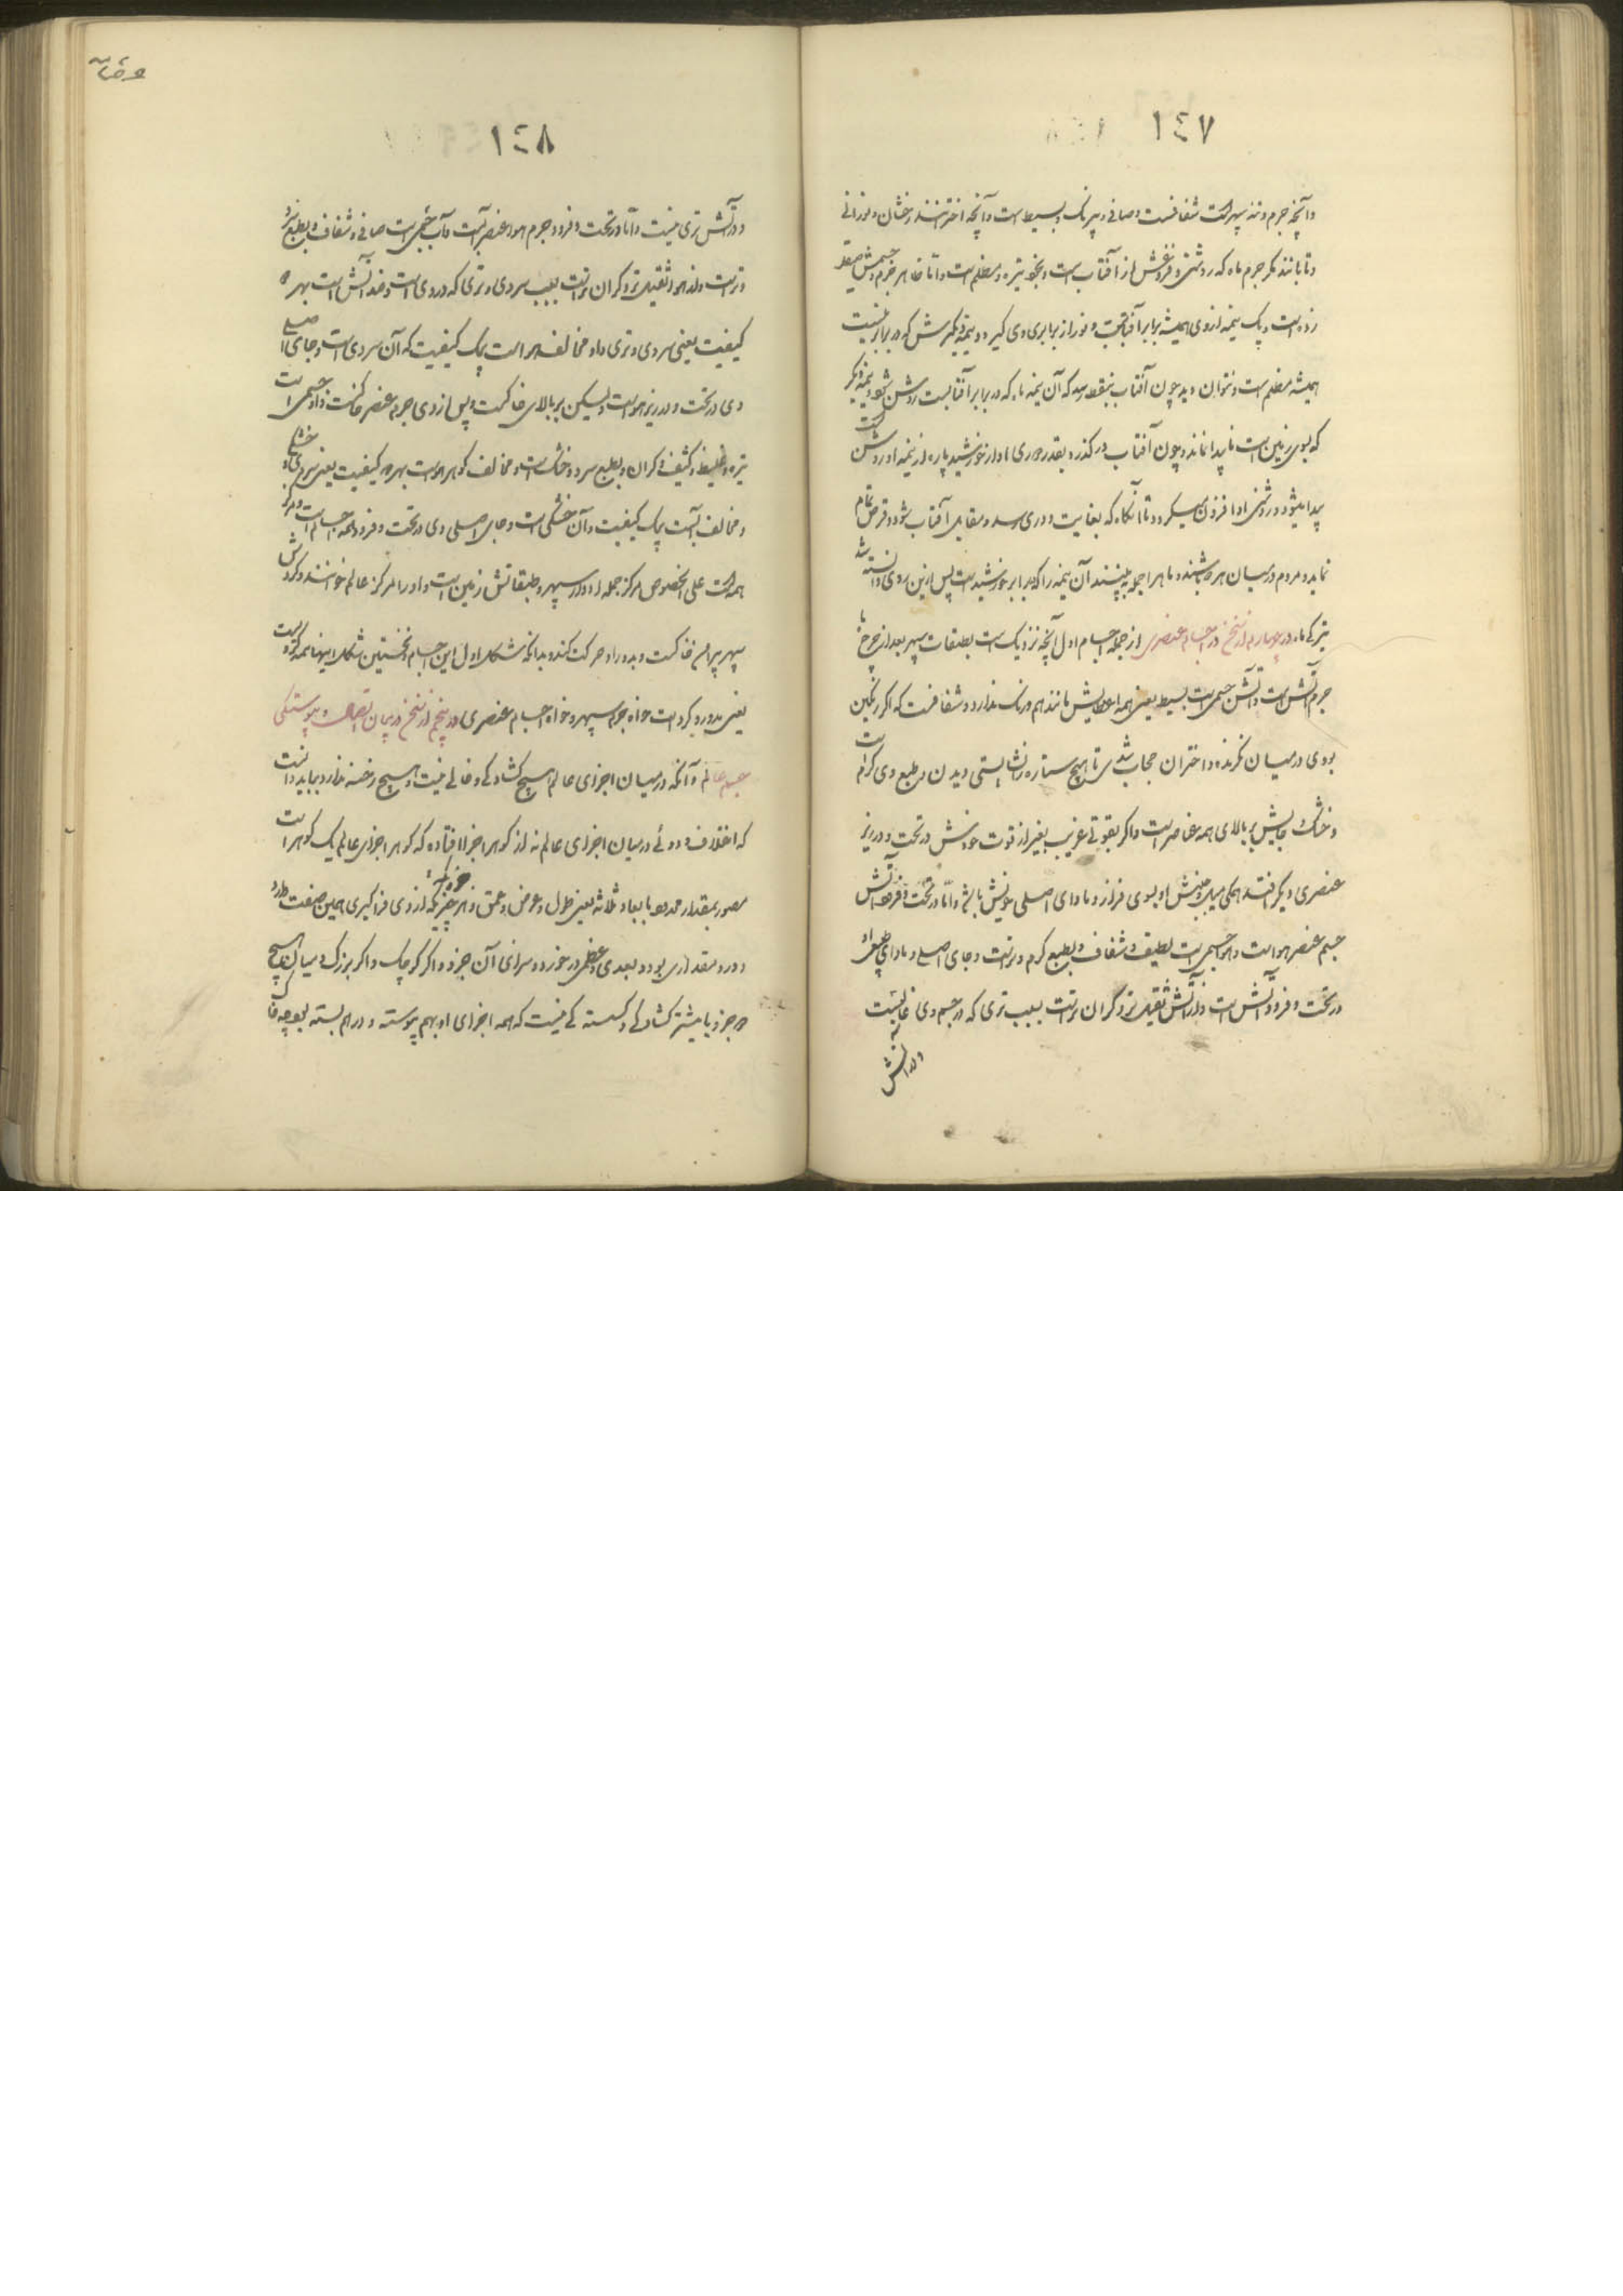 ١٤٧
وآنچه جرم و تنه سپهر است شفافست و صافی و بیرنگ و بسیط است و آنچه اخترانند درخشان و نورانی
و تابانند مگر جرم ماه که روشنی و فروغش از آفتاب است و بخود تیره و مظلم است و اما ظاهر جرم و جسمش صیقل
زده است و یک نیمه از وی همیشه برابر آفتابست و نور از برابری وی گیرد و نیمه دیگرش که در برابر نیست
همیشه مظلم است و نتوان دید چون آفتاب بنقطه رسد که آن نیمه ماه که در برابر آفتابست روشن شود و نیمه دیگر
که بسوی زمین است ناپیدا ماند و چون آفتاب درگذرد بقدر دوری ماه از خورشید پاره از نیمه او روشن گشت
پیدا میشود و روشنی او افزون میگردد تا آنگاه که بغایت دوری رسد و مقابل آفتاب شود و قرص تمام
نماید و مردم در میان هر دو باشند و ماه را جمله ببینند آن نیمه را که برابر خورشید است پس ازین روی دانسته شد
تیرگی ماه در چهارم از سخن در اجسام عنصری از جمله اجسام اول آنچه نزدیک است بطبقات سپهر بعد از چرخ ماه
جرم آتش است و آتش جسمی است بسیط یعنی همه ابعاضش مانند هم و رنگ ندارد و شفافست که اگر رنگین
بودی در میان نگرنده و اختران حجاب شدی تا هیچ ستاره را نشایستی دیدن و طبع وی گرم است
و خشک و جایش بر بالای همه عناصر است و اگر بقوتی غریب بغیر از قوت خودش در تحت و در زیر
عنصری دیگر افتد همگی میل و جنبش او بسوی فراز و ماوای اصلی خویش باشد و اما در تحت و فرود آتش
جسم عنصر هواست و هوا جسمی است لطیف و شفاف و بطبع گرم و تر است و جای اصلی و ماوای طبیعی او
در تحت و فرود آتش است و از آتش ثقیل تر و گران تر است بسبب تری که در جسم وی غالبست
و در آتش نه
١٤٨
و در آتش تری نیست و اما در تحت و فرود جرم هوا عنصر آبست و آب جسمی است صافی و شفاف و بطبع سرد
و تر است و از هوا ثقیل تر و گران تر است بسبب سردی و تری که در وی است و ضد آتش است بهر دو
کیفیت یعنی سردی و تری و او مخالف هواست بیک کیفیت که آن سردی است و جای اصلی
وی در تحت و در زیر هواست و لیکن بر بالای خاکست و پس از وی جرم عنصر خاکست و او جسمی است
تیره و غلیظ و کثیف و گران و بطبع سرد و خشک است و مخالف گوهر هواست بهر دو کیفیت یعنی سردی و خشکی
و مخالف آبست بیک کیفیت و آن خشکی است و جای اصلی وی در تحت و فرود همه اجسام است و مرکز
همه است علی الخصوص مرکز جمله ادوار سپهر و طبقاتش زمین است و او را مرکز عالم خوانند و گردش
سپهر پیرامن خاکست و بدور او حرکت کند و بدانکه شکل اول این اجسام و نخستین شکل اینها همه کرویست
یعنی مدور و گرد است خواه جرم سپهر و خواه اجسام عنصری در پنجم از سخن در بیان اتصال و پیوستگی
جسم عالم و آنکه در میان اجزای عالم هیچ گشادگی و خالی نیست و هیچ رخنه ندارد بباید دانست
که اختلاف و دوئی در میان اجزای عالم نه از گوهر اجزا افتاده که گوهر اجزای عالم یک گوهر است
مصور بمقدار محدود بابعاد ثلاثه یعنی طول و عرض و عمق و هر جزویکه از وی فراگیری همین صفت دارد
و در و مقداری بود و بعدی و عظمی در خورد و سزای آن جزو و اگر کوچک و اگر بزرگ و میان هیچ
دو جزو یا بیشتر گشادگی و گسستگی نیست که همه اجزای او بهم پیوسته و در هم بسته بوجه